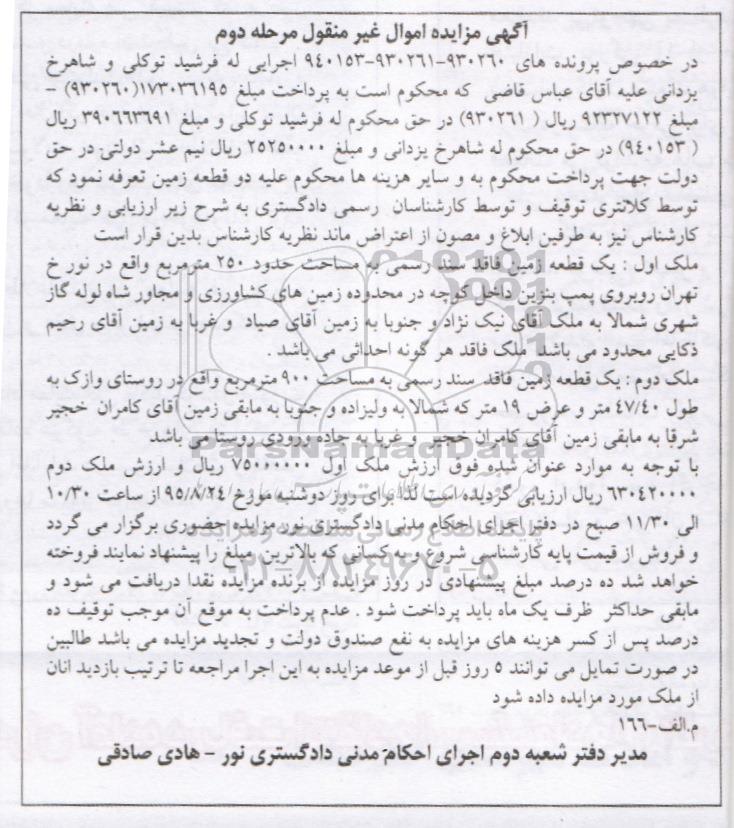 آگهی مزایده اموال غیر منقول مرحله دوم
در خصوص پرونده های ۹۳۰۲۶۰-۹۳۰۲۶۱-۹۴۰۱۵۳ اجرایی له فرشید توکلی و شاهرخ
یزدانی علیه آقای عباس قاضی که محکوم است به پرداخت مبلغ ۱۷۳۰۳۶۱۹۵(۹۳۰۲۶۰) –
مبلغ ۹۲۳۲۷۱۲۲ ریال ( ۹۳۰۲۶۱) در حق محکوم له فرشید توکلی و مبلغ ۳۹۰۶۶۳۶۹۱ ریال
( ۹۴۰۱۵۳) در حق محکوم له شاهرخ یزدانی و مبلغ ۲۵۲۵۰۰۰۰ ریال نیم عشر دولتی در حق
دولت جهت پرداخت محکوم به و سایر هزینه ها محکوم علیه دو قطعه زمین تعرفه نمود که
توسط کلانتری توقیف و توسط کارشناسان رسمی دادگستری به شرح زیر ارزیابی و نظریه
کارشناس نیز به طرفین ابلاغ و مصون از اعتراض ماند نظریه کارشناس بدین قرار است
ملک اول : یک قطعه زمین فاقد سند رسمی به مساحت حدود ۲۵۰ مترمربع واقع در نور خ
تهران روبروی پمپ بنزین داخل کوچه در محدوده زمین های کشاورزی و مجاور شاه لوله گاز
شهری شمالا به ملک آقای نیک نژاد و جنوبا به زمین آقای صیاد و غربا به زمین آقای رحیم
ذکایی محدود می باشد ملک فاقد هر گونه احداثی می باشد .
ملک دوم : یک قطعه زمین فاقد سند رسمی به مساحت ۹۰۰ مترمربع واقع در روستای وازک به
طول ۴۷/۴۰ متر و عرض ۱۹ متر که شمالا به ولیزاده و جنوبا به مابقی زمین آقای کامران خجیر
شرقا به مابقی زمین آقای کامران خجیر و غربا به جاده ورودی روستا می باشد
با توجه به موارد عنوان شده فوق ارزش ملک اول ۷۵۰۰۰۰۰۰۰ ریال و ارزش ملک دوم
۶۳۰۴۲۰۰۰۰ ریال ارزیابی گردیده است لذا برای روز دوشنبه مورخ ۹۵/۸/۲۴ از ساعت ۱۰/۳۰
الی ۱۱/۳۰ صبح در دفتر اجرای احکام مدنی دادگستری نور مزایده حضوری برگزار می گردد
و فروش از قیمت پایه کارشناسی شروع و به کسانی که بالاترین مبلغ را پیشنهاد نمایند فروخته
خواهد شد ده درصد مبلغ پیشنهادی در روز مزایده از برنده مزایده نقدا دریافت می شود و
مابقی حداکثر ظرف یک ماه باید پرداخت شود . عدم پرداخت به موقع آن موجب توقیف ده
درصد پس از کسر هزینه های مزایده به نفع صندوق دولت و تجدید مزایده می باشد طالبین
در صورت تمایل می توانند ۵ روز قبل از موعد مزایده به این اجرا مراجعه تا ترتیب بازدید انان
از ملک مورد مزایده داده شود
م.الف-۱۶۶
مدیر دفتر شعبه دوم اجرای احکام مدنی دادگستری نور – هادی صادقی
ParsNamadData
پایگاه اطلاع رسانی مناقصه و مزایده
۰۲۱-۸۸۳۴۹۶۷۰-۵